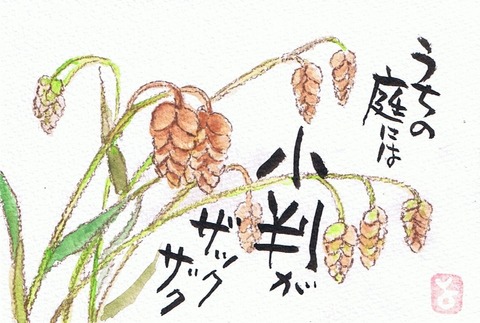 うちの
庭には
小判が
ザック
ザク